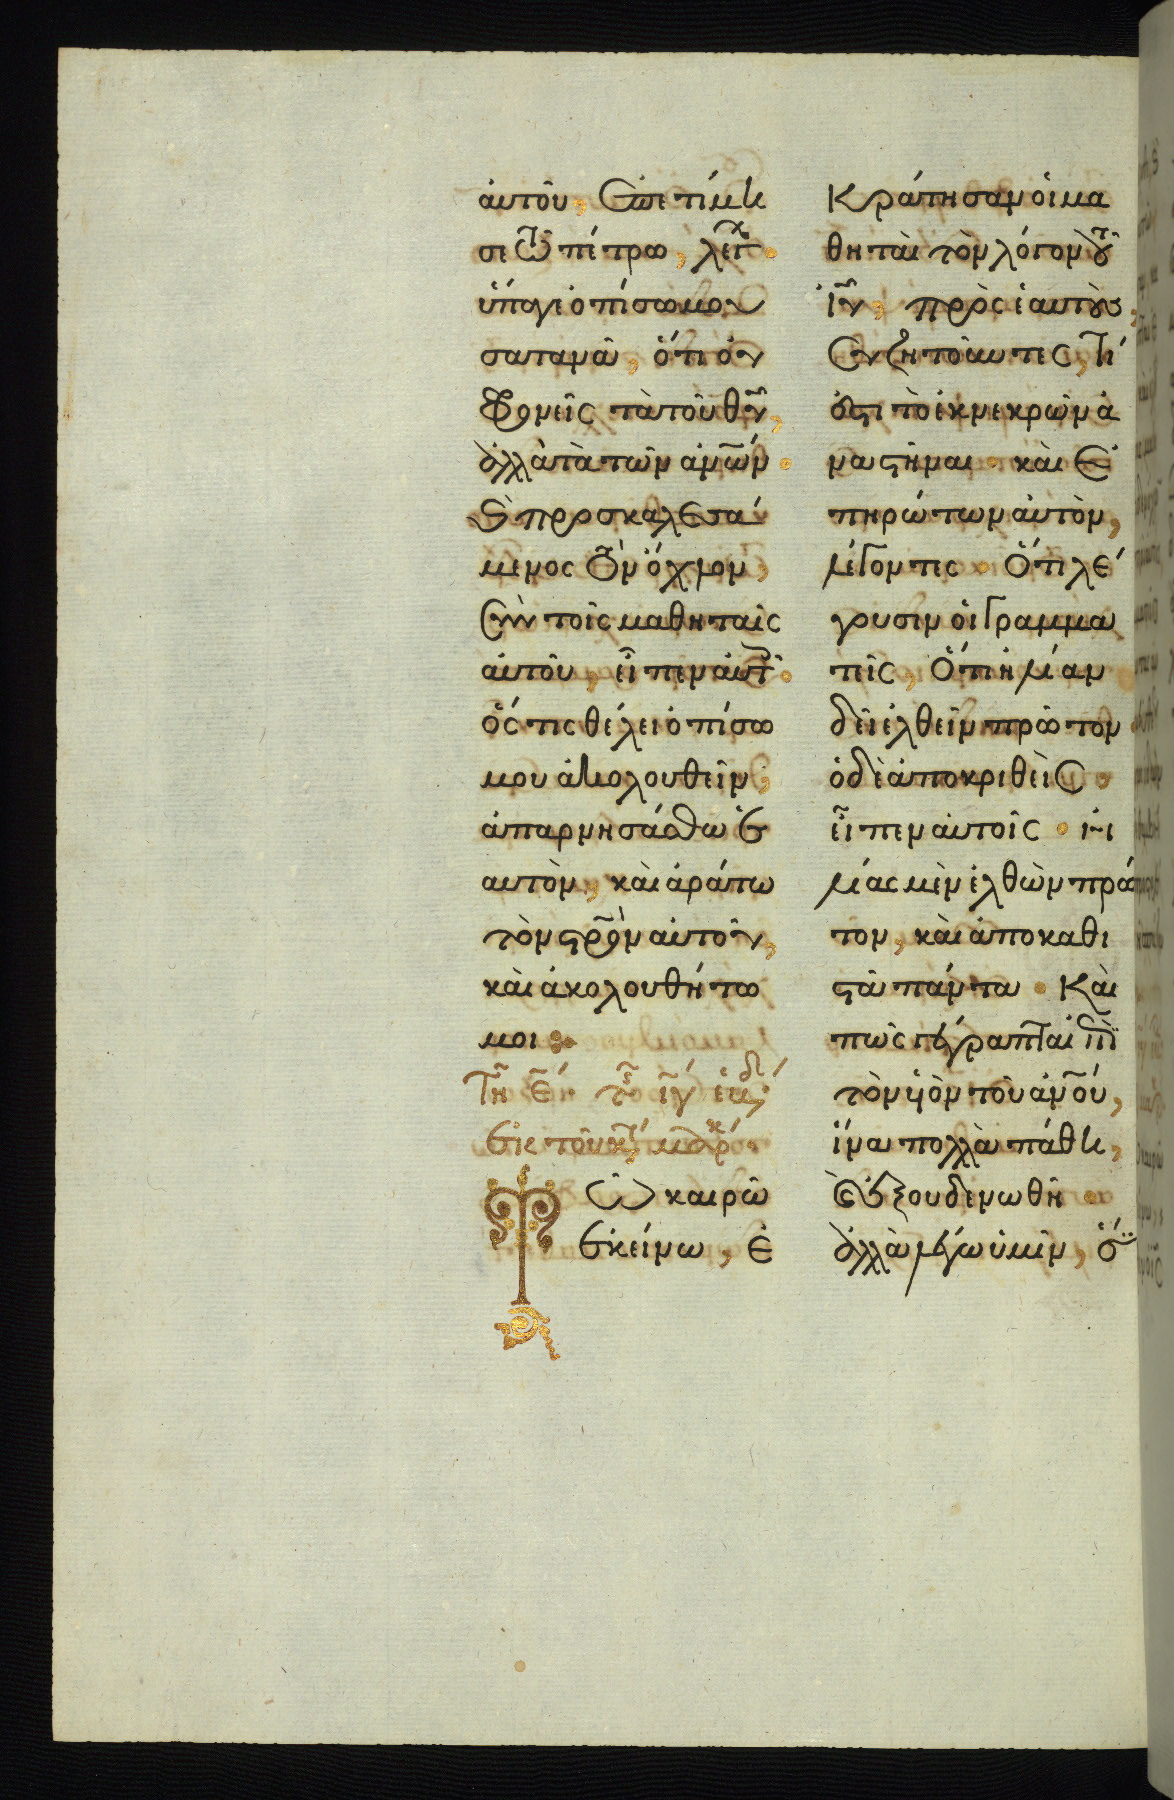 ἀυτοῦ, ἐπετίμη
σε τῶ πέτρω, λέγ
ὕπαγε ὀπίσω μου
σατανᾶ, ὅτι οὐ
φρονεῖς τὰ τοῦ θυ,
ἀλλὰ τὰ τῶν ἀνων.
καὶ προσκαλεσά
μενος τὸν ὄχλον,
σὺν τοῖς μαθηταῖς
ἀυτοῦ, εἶπεν ἀυτ
ὅς τις θέλει ὀπίσω
μου ἀκολουθεῖν,
ἀπαρνησάσθω ἑ
αυτὸν, καὶ ἀράτω
τὸν στρον ἀυτοῦ,
καὶ ἀκολουθήτω
μοι
ἐκ τοῦ κτ μάρ
Τῶ καιρῶ
ἐκείνω, ἐ
Κράτησαν ὁι μα
θηται τὸν λόγον τοῦ
ιυ, πρὸς ἑαυτοὺς
συζητοῦντες, τί
ἐστι τὸ ἐκ νεκρῶν ἀ
ναστῆναι. καὶ ἐ
πηρώτων ἀυτὸν,
λέγοντες. Ὅτι λέ
γουσιν ὁι γραμμα
τεῖς, Ὅτι ἠλίαν
δεῖ ἐλθεῖν πρῶτον
ὁ δὲ ἀποκριθεὶς
εἶπεν ἀυτοῖς. ἠ
λίας μὲν ἐλθὼν πρῶ
τον, καὶ ἀποκαθι
στᾶ πάντα. Καὶ
πῶς γέγραπται ἐπὶ
τὸν υἱὸν τοῦ ἀνου,
ἵνα πολλὰ πάθη,
καὶ ἐξουδενωθῆ
ἀλλὰ λέγω ὑμῖν, ὅ